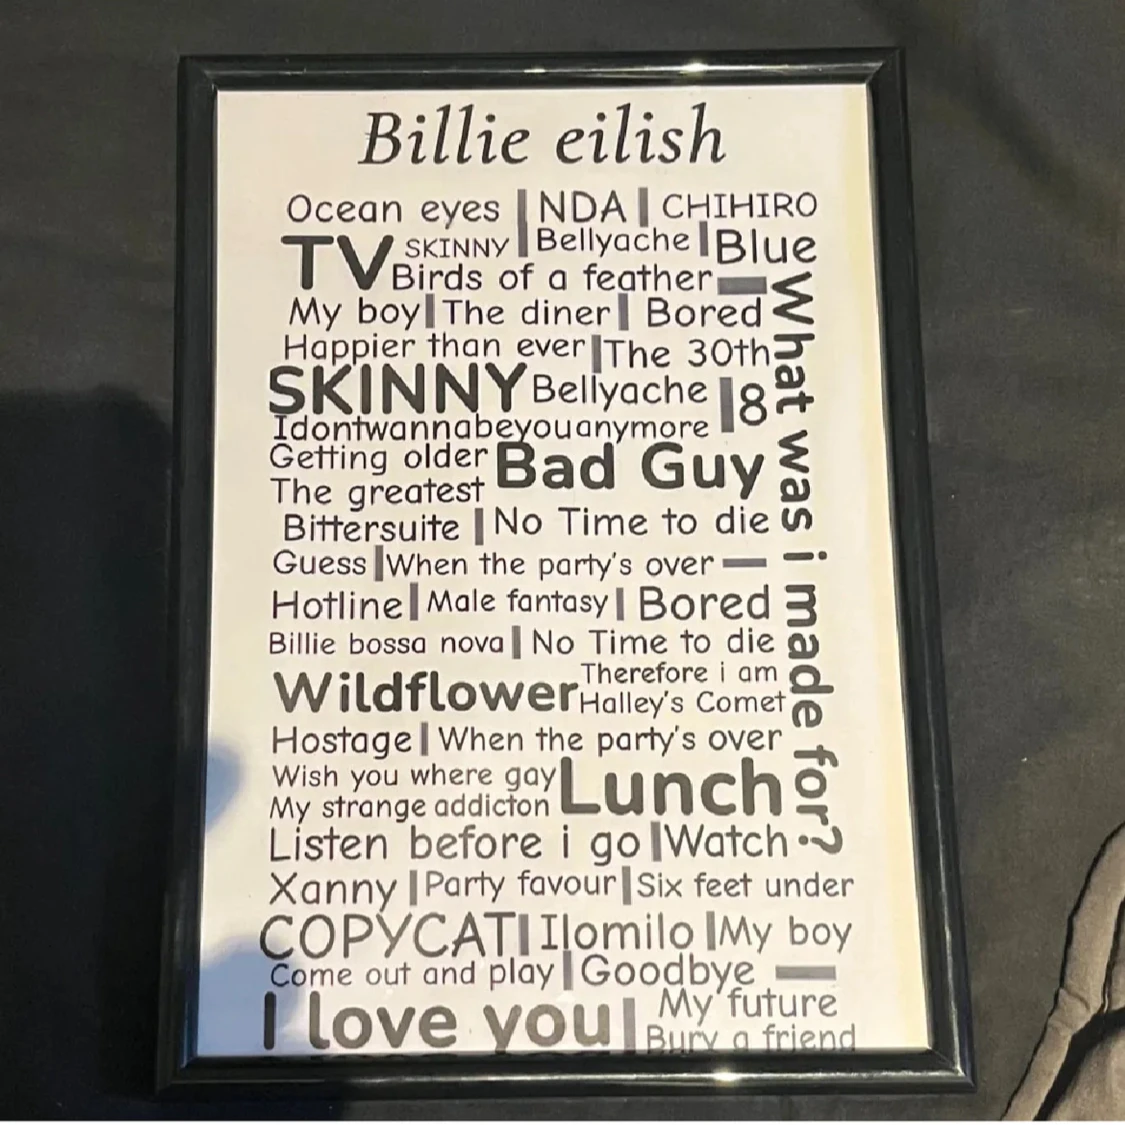 Billie eilish
Ocean eyes | NDA | CHIHIRO
TV SKINNY | Bellyache | Blue
Birds of a feather
My boy | The diner | Bored
Happier than ever | The 30th
SKINNY Bellyache | 8
Idontwannabeyouanymore
Getting older Bad Guy
The greatest
Bittersuite | No Time to die
Guess | When the party's over
Hotline | Male fantasy | Bored
Billie bossa nova | No Time to die
Wildflower Therefore i am
Halley's Comet
Hostage | When the party's over
Wish you where gay Lunch
My strange addicton
Listen before i go | Watch
What was i made for?
Xanny | Party favour | Six feet under
COPYCAT | Ilomilo | My boy
Come out and play | Goodbye
I love you | My future
Bury a friend